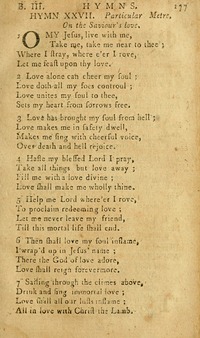 B. III. HYMNS. 177
HYMN XXVII. Particular Metre.
On the Saviour's love.
O MY Jesus, live with me,
Take me, take me near to thee;
Where I stray, where e'er I rove,
Let me feast upon thy love.
2 Love alone can cheer my soul;
Love doth all my foes controul;
Love unites my soul to thee,
Sets my heart from sorrows free.
3 Love has brought my soul from hell;
Love makes me in safety dwell,
Makes me sing with cheerful voice,
Over death and hell rejoice.
4 Haste my blessed Lord I pray,
Take all things but love away;
Fill me with a love divine;
Love shall make me wholly thine.
5 Help me Lord where'er I rove,
To proclaim redeeming love;
Let me never leave my friend,
Till this mortal life shall end.
6 Then shall love my soul inflame,
I wrap'd up in Jesus' name;
There the God of love adore,
Love shall reign forevermore.
7 Sailing through the climes above,
Drink and sing immortal love;
Love shall all our lusts inflame;
All in love with Christ the Lamb.